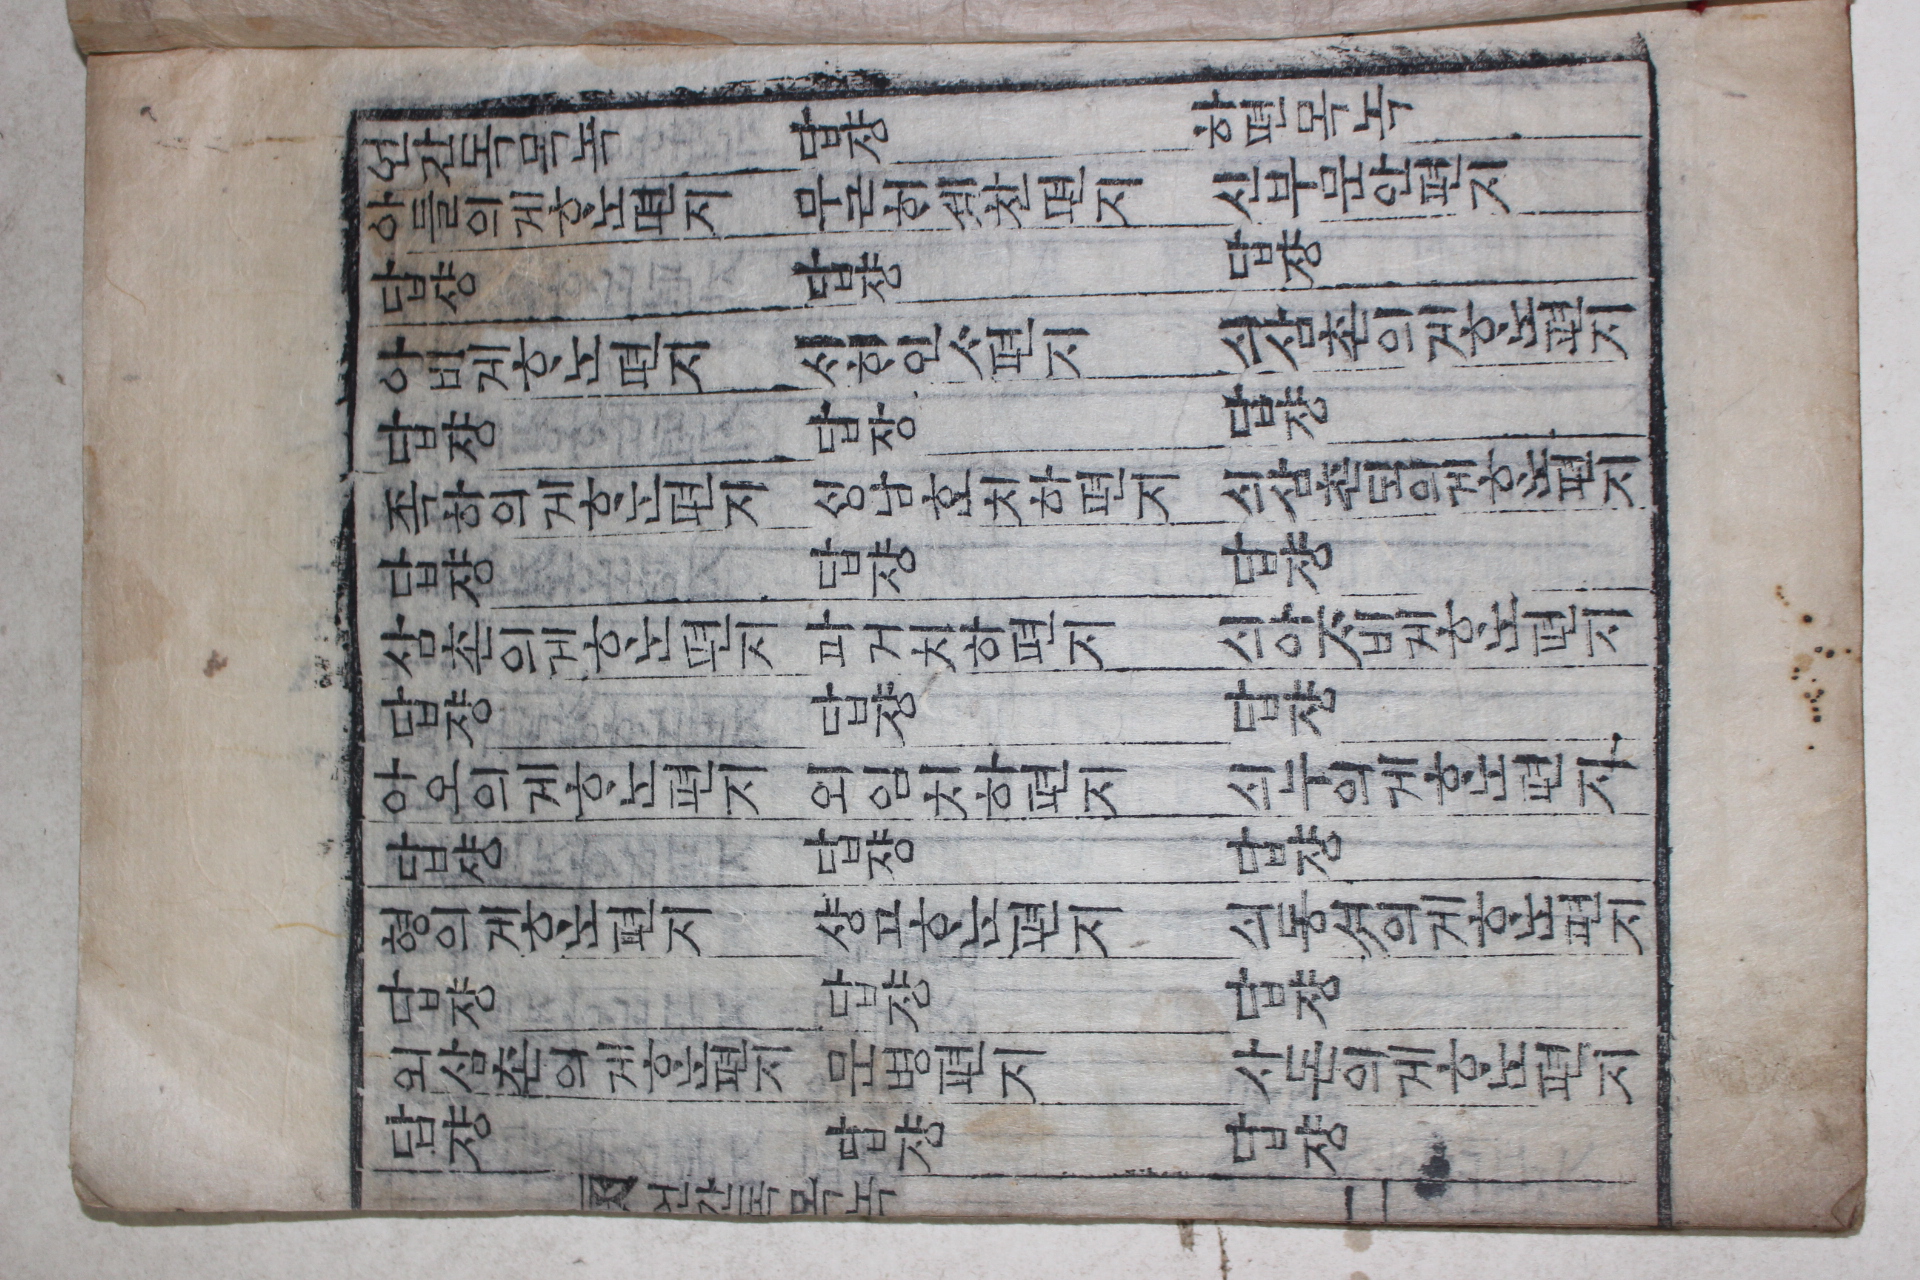 언간독목녹 답쟝 하편목녹
아들의게ᄒᆞᄂᆞᆫ편지 무근ᄒᆡ셰찬편지 신부문안편지
답샹 답쟝 답쟝
아비게ᄒᆞᄂᆞᆫ편지 ᄉᆡᄒᆡ인ᄉᆞ편지 싀삼촌의게ᄒᆞᄂᆞᆫ편지
답쟝 답장 답쟝
족하의게ᄒᆞᄂᆞᆫ편지 싱남ᄒᆞᆫ치하편지 싀삼촌모의게ᄒᆞᄂᆞᆫ편지
답쟝 답쟝 답쟝
삼촌의게ᄒᆞᄂᆞᆫ편지 과거치하편지 싀아ᄌᆞ비게ᄒᆞᄂᆞᆫ편지
답쟝 답쟝 답쟝
아오의게ᄒᆞᄂᆞᆫ편지 외임치하편지 싀누의게ᄒᆞᄂᆞᆫ편지
답쟝 답쟝 답쟝
형의게ᄒᆞᄂᆞᆫ편지 샹고ᄒᆞᄂᆞᆫ편지 싀동셔의게ᄒᆞᄂᆞᆫ편지
답쟝 답쟝 답쟝
외삼촌의게ᄒᆞᄂᆞᆫ편지 문병편지 사돈의게ᄒᆞᄂᆞᆫ편지
답쟝 답쟝 답쟝
언간독목녹 一